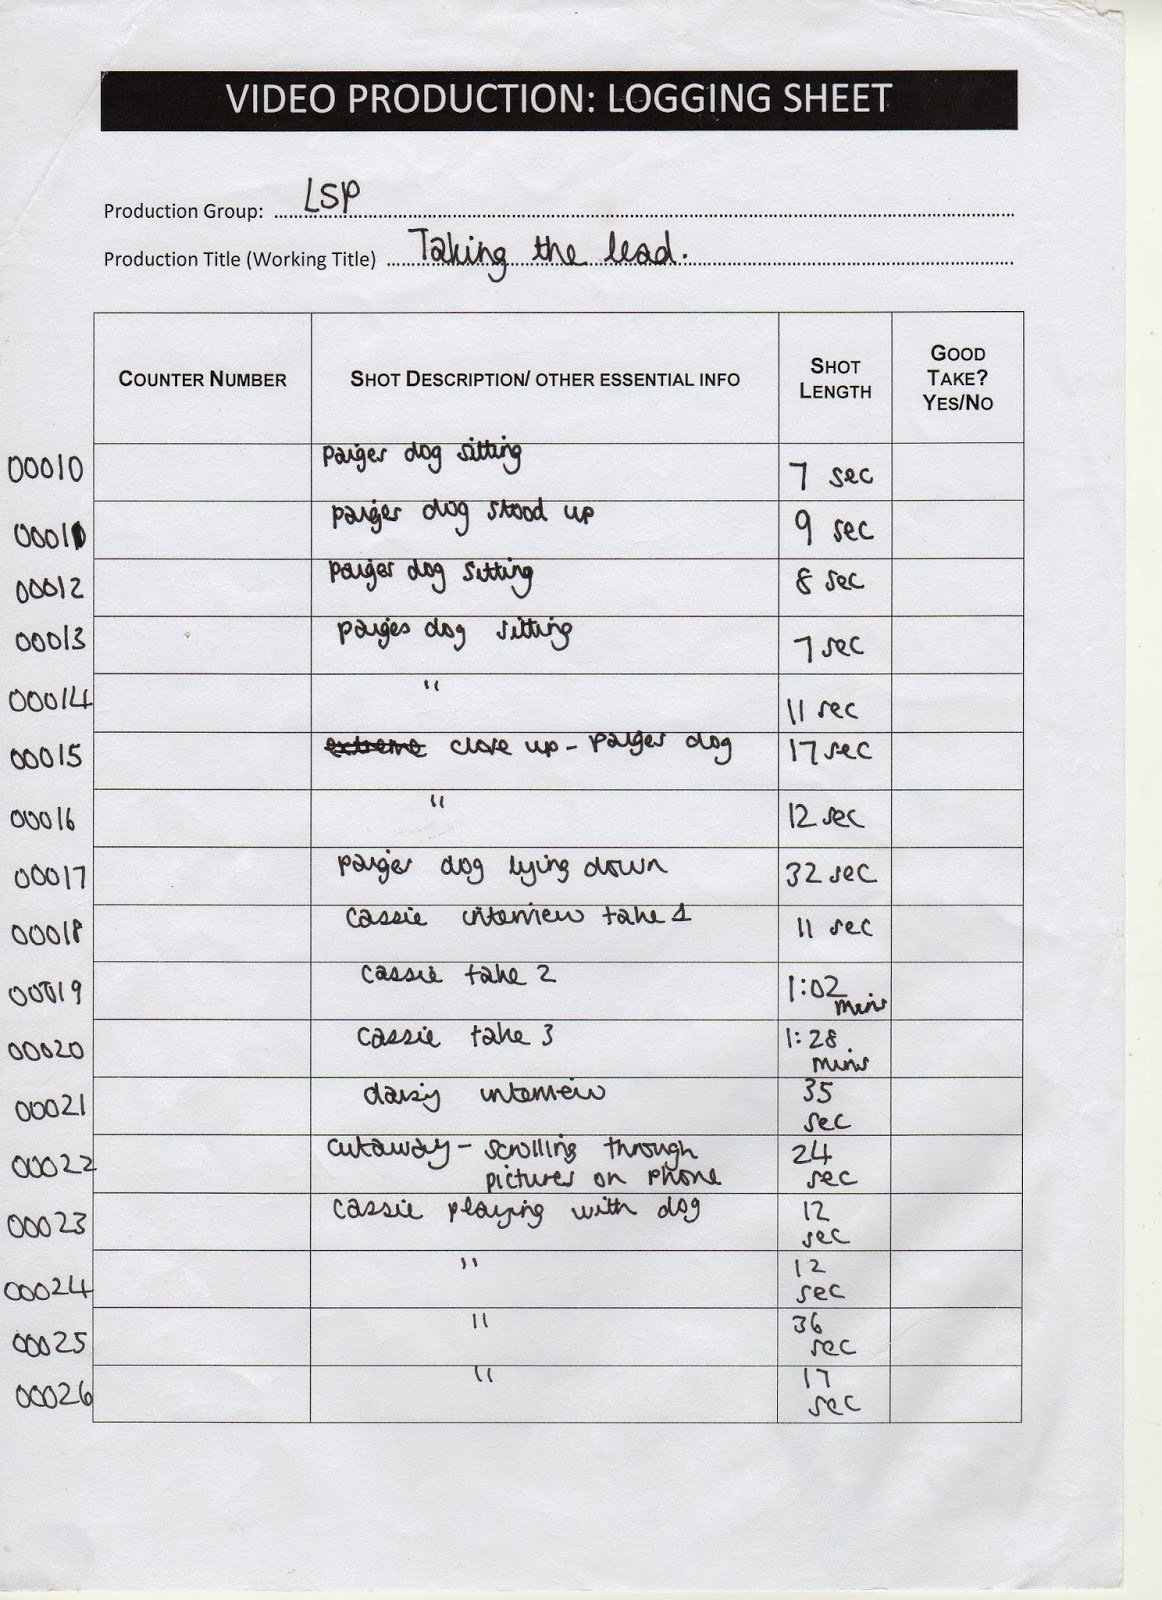 VIDEO PRODUCTION: LOGGING SHEET
Production Group: LSP
Production Title (Working Title) Taking the lead.
COUNTER NUMBER SHOT DESCRIPTION/ OTHER ESSENTIAL INFO SHOT LENGTH GOOD TAKE? YES/NO
00010 paiges dog sitting 7 sec
00011 paiges dog stood up 9 sec
00012 paiges dog sitting 8 sec
00013 paiges dog sitting 7 sec
00014 " 11 sec
00015 extreme close up - paiges dog 17 sec
00016 " 12 sec
00017 paiges dog lying down 32 sec
00018 cassie interview take 1 11 sec
00019 cassie take 2 1:02 mins
00020 cassie take 3 1:28. mins
00021 daisy interview 35 sec
00022 cutaway - scrolling through pictures on phone 24 sec
00023 cassie playing with dog 12 sec
00024 " 12 sec
00025 " 36 sec
00026 " 17 sec